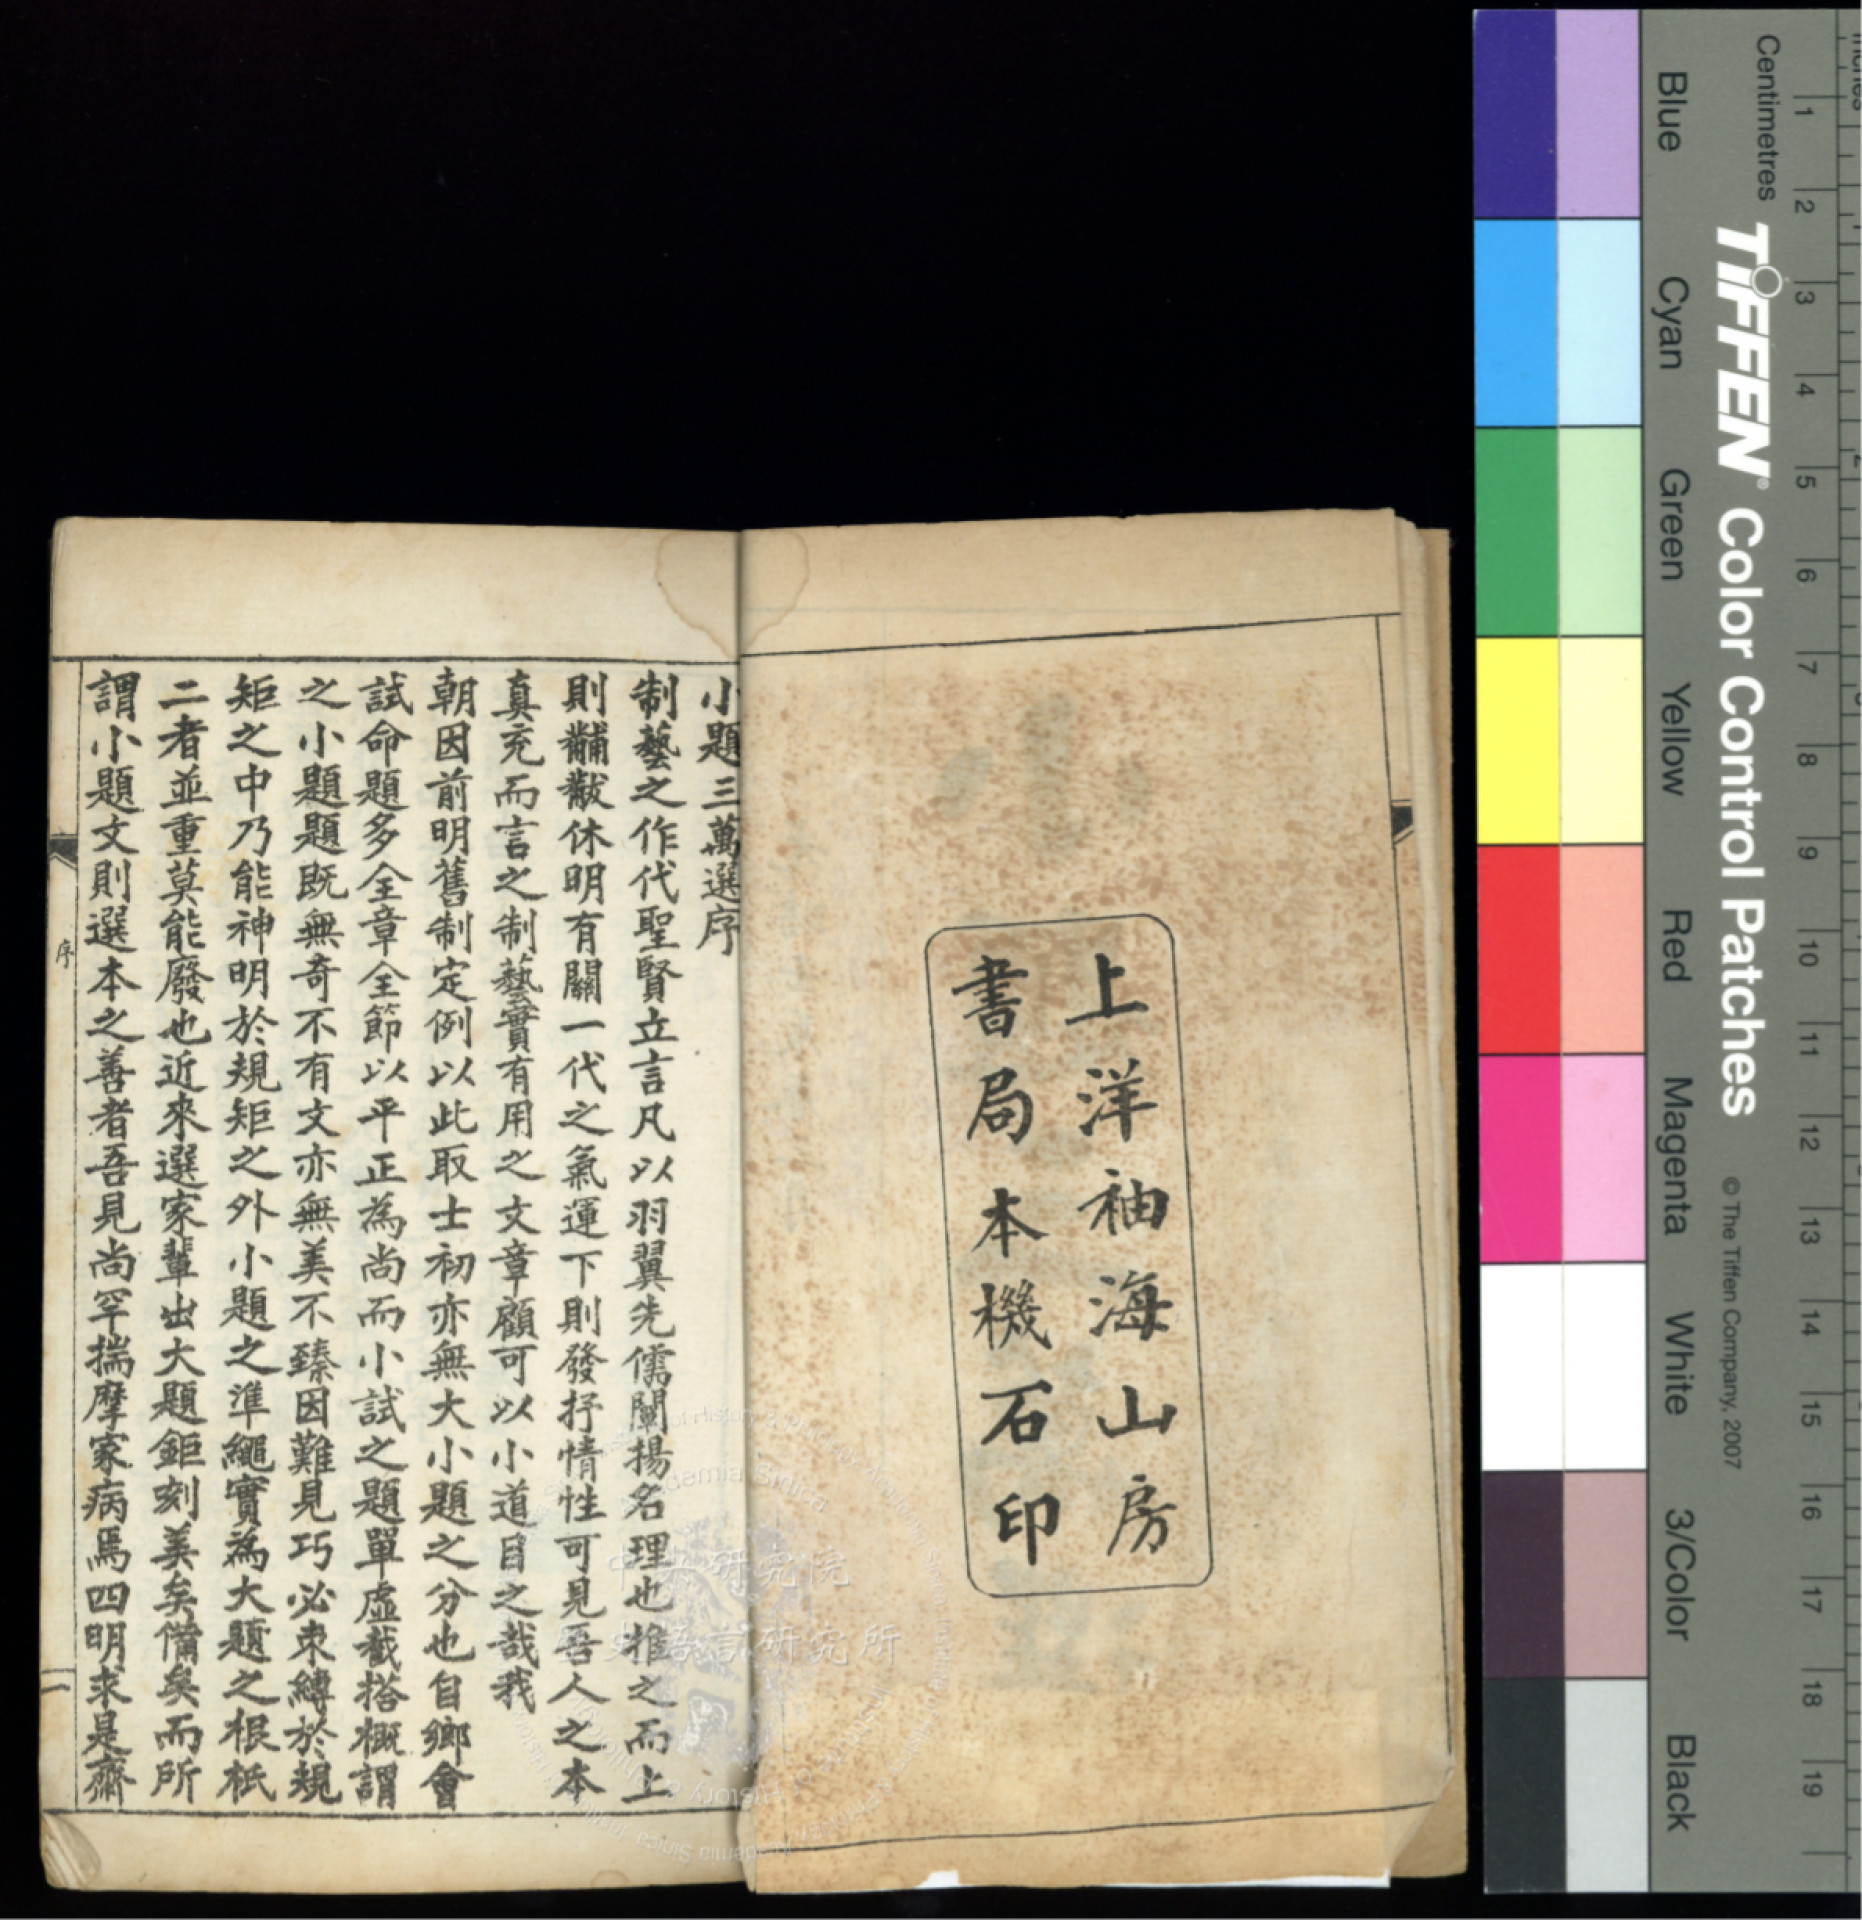 上洋袖海山房
書局本機石印
小題三萬選序
制藝之作代聖賢立言凡以羽翼先儒闡揚名理也推之而上
則黼黻休明有關一代之氣運下則發抒情性可見吾人之本
真充而言之制藝實有用之文章顧可以小道目之哉我
朝因前明舊制定例以此取士初亦無大小題之分也自鄉會
試命題多全章全節以平正為尚而小試之題單虛截搭概謂
之小題題既無奇不有文亦無美不臻因難見巧必束縛於規
矩之中乃能神明於規矩之外小題之準繩實為大題之根柢
二者並重莫能廢也近來選家輩出大題鉅刻美矣備矣而所
謂小題文則選本之善者吾見尚罕揣摩家病焉四明求是齋
序
一
中央研究院
史語言研究所
Centimetres
1 2 3 4 5 6 7 8 9 10 11 12 13 14 15 16 17 18 19
TIFFEN® Color Control Patches
© The Tiffen Company, 2007
Blue
Cyan
Green
Yellow
Red
Magenta
White
3/Color
Black